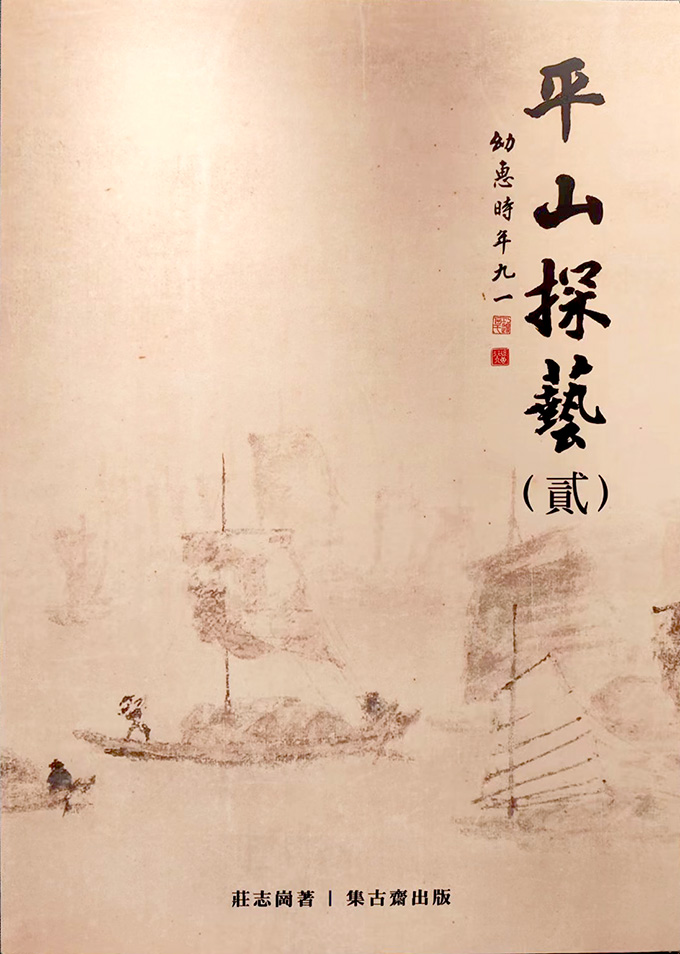 平山探藝
(貳)
幼惠時年九一
莊志崗著 | 集古齋出版